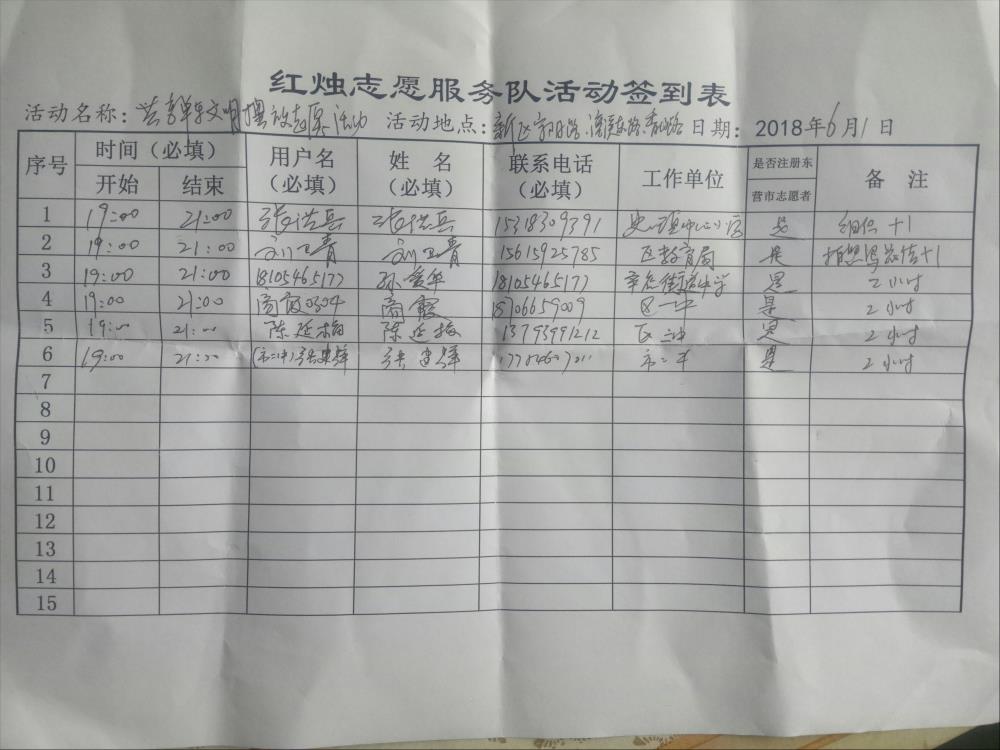 红烛志愿服务队活动签到表
活动名称：共享单车文明摆放志愿活动 活动地点： 日期：2018年6月1日
序号 时间（必填） 用户名（必填） 姓名（必填） 联系电话（必填） 工作单位 是否注册东营市志愿者 备注
开始 结束
1 19:00 21:00 张洪兵 张洪兵 15318309391 是 组织+1
2 19:00 21:00 刘卫青 刘卫青 15615925785 区教育局 是 +1
3 19:00 21:00 18105465177 孙爱华 18105465177 是 2小时
4 19:00 21:00 商霞0304 商霞 18706659009 区一中 是 2小时
5 19:00 21:00 陈延梅 陈延梅 13793991212 区二中 是 2小时
6 19:00 21:00 市二中 是 2小时
7
8
9
10
11
12
13
14
15